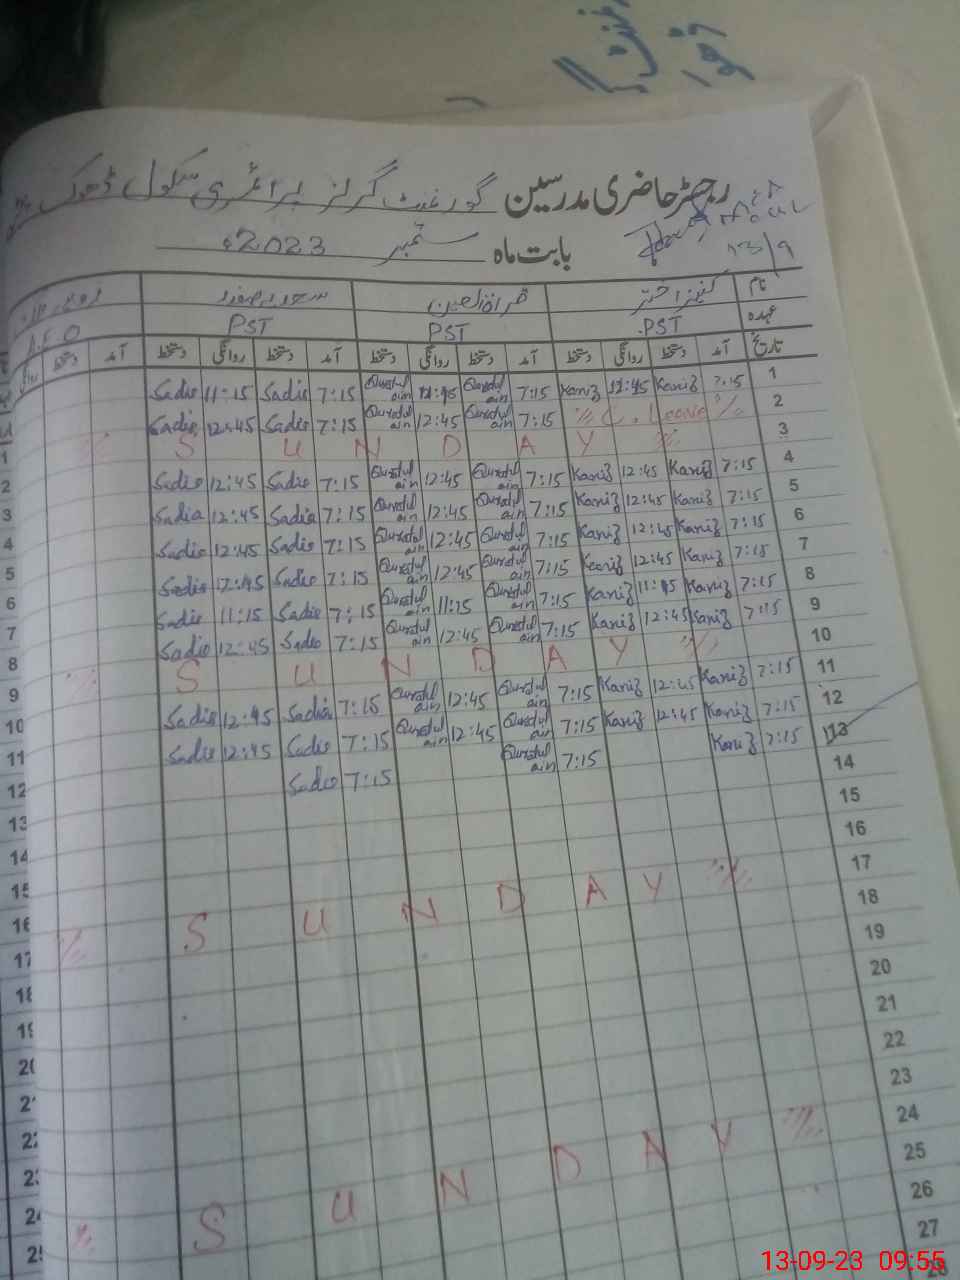 رجسٹر حاضری مدرسین گورنمنٹ گرلز پرائمری سکول ڈھوک
بابت ماہ ستمبر 2023ء
13/9
نام کنیز اختر قراۃ العین سعدیہ صفدر
عہدہ PST PST PST
تاریخ آمد دستخط روانگی دستخط آمد دستخط روانگی دستخط آمد دستخط روانگی دستخط آمد دستخط روانگی
1 7:15 Kaniz 11:45 Kaniz 7:15 Quratul ain 11:15 Quratul ain 7:15 Sadia 11:15 Sadia
2 C. Leave 7:15 Quratul ain 12:45 Quratul ain 7:15 Sadia 12:45 Sadia
3 S U N D A Y
4 7:15 Kaniz 12:45 Kaniz 7:15 Quratul ain 12:45 Quratul ain 7:15 Sadia 12:45 Sadia
5 7:15 Kaniz 12:45 Kaniz 7:15 Quratul ain 12:45 Quratul ain 7:15 Sadia 12:45 Sadia
6 7:15 Kaniz 12:45 Kaniz 7:15 Quratul ain 12:45 Quratul ain 7:15 Sadia 12:45 Sadia
7 7:15 Kaniz 12:45 Kaniz 7:15 Quratul ain 12:45 Quratul ain 7:15 Sadia 12:45 Sadia
8 7:15 Kaniz 11:15 Kaniz 7:15 Quratul ain 11:15 Quratul ain 7:15 Sadia 11:15 Sadia
9 7:15 Kaniz 12:45 Kaniz 7:15 Quratul ain 12:45 Quratul ain 7:15 Sadia 12:45 Sadia
10 S U N D A Y
11 7:15 Kaniz 12:45 Kaniz 7:15 Quratul ain 12:45 Quratul ain 7:15 Sadia 12:45 Sadia
12 7:15 Kaniz 12:45 Kaniz 7:15 Quratul ain 12:45 Quratul ain 7:15 Sadia 12:45 Sadia
13 7:15 Kaniz 7:15 Quratul ain 7:15 Sadia
14
15
16
17 S U N D A Y
18
19
20
21
22
23
24 S U N D A Y
25
26
27
28
1
2
3
4
5
6
7
8
9
10
11
12
13
14
15
16
17
18
19
20
21
22
23
24
25
13-09-23 09:55